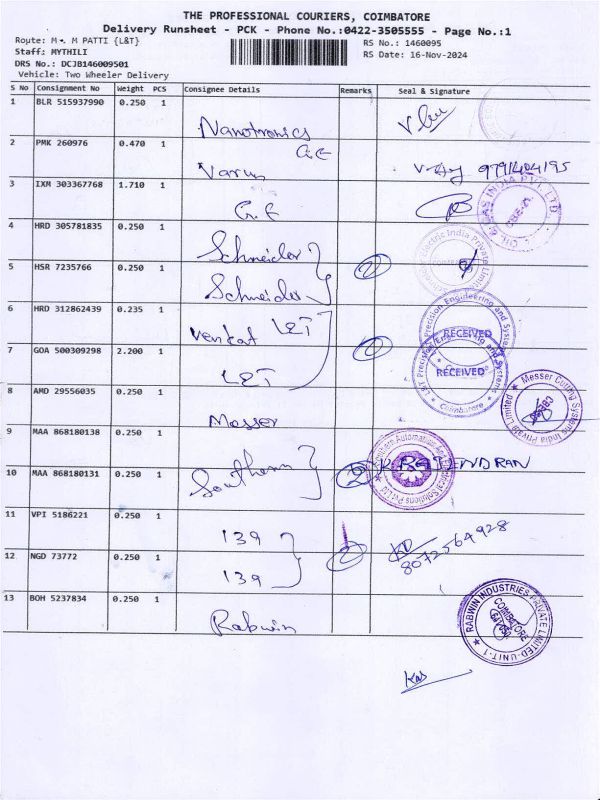 THE PROFESSIONAL COURIERS, COIMBATORE
Delivery Runsheet - PCK - Phone No.:0422-3505555 - Page No.:1
Route: M . M PATTI {L&T}
RS No.: 1460095
Staff: MYTHILI
RS Date: 16-Nov-2024
DRS No.: DCJB146009501
Vehicle: Two Wheeler Delivery
S No Consignment No Weight PCS Consignee Details Remarks Seal & Signature
1 BLR 515937990 0.250 1 Nanotronics
2 PMK 260976 0.470 1 GE
Varun 9791404195
3 IXM 303367768 1.710 1 G.E
4 HRD 305781835 0.250 1 Schneider
5 HSR 7235766 0.250 1 Schneider 2
6 HRD 312862439 0.235 1 Venkat L&T
7 GOA 500309298 2.200 1 L&T 2
RECEIVED
RECEIVED
L&T Precision Engineering and Systems
Coimbatore
8 AMD 29556035 0.250 1 Messer
Messer Cutting Systems India Private Limited
9 MAA 868180138 0.250 1
10 MAA 868180131 0.250 1 Southern 2 K. RAJENDRAN
11 VPI 5186221 0.250 1 139
8072564928
12 NGD 73772 0.250 1 139 2
13 BOH 5237834 0.250 1 Rabwin
RABWIN INDUSTRIES PRIVATE LIMITED-UNIT-1
COIMBATORE